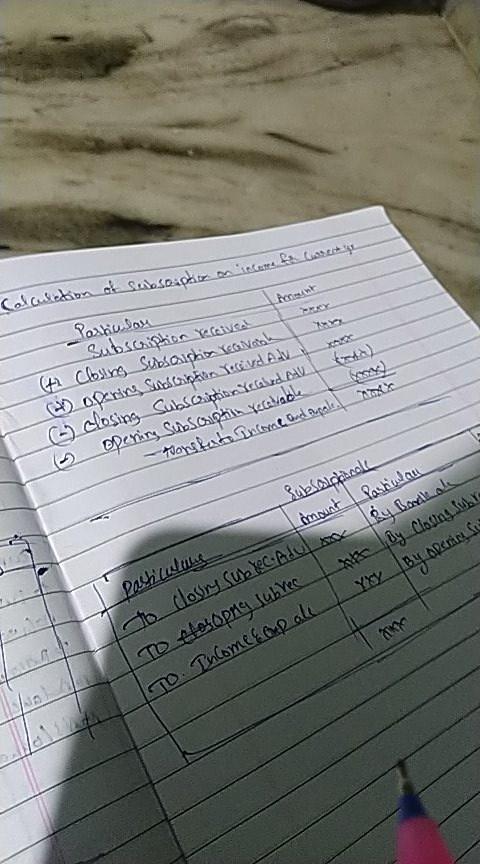 Calculation of Subscription on income for current yr
Particulars Amount
Subscription received xxxx
(+) Closing Subscription receivable xxx
(+) Opening Subscription received Adv xxx
(-) Closing Subscription received Adv (xxx)
(-) Opening Subscription receivable (xxx)
Income and xxxx
Subscription a/c
Particulars Amount Particulars
To Closing Sub rec. Adv xxx By Bank a/c
To Opening Sub rec xxx By Closing Sub
To Income & exp a/c xxx By Opening
xxx